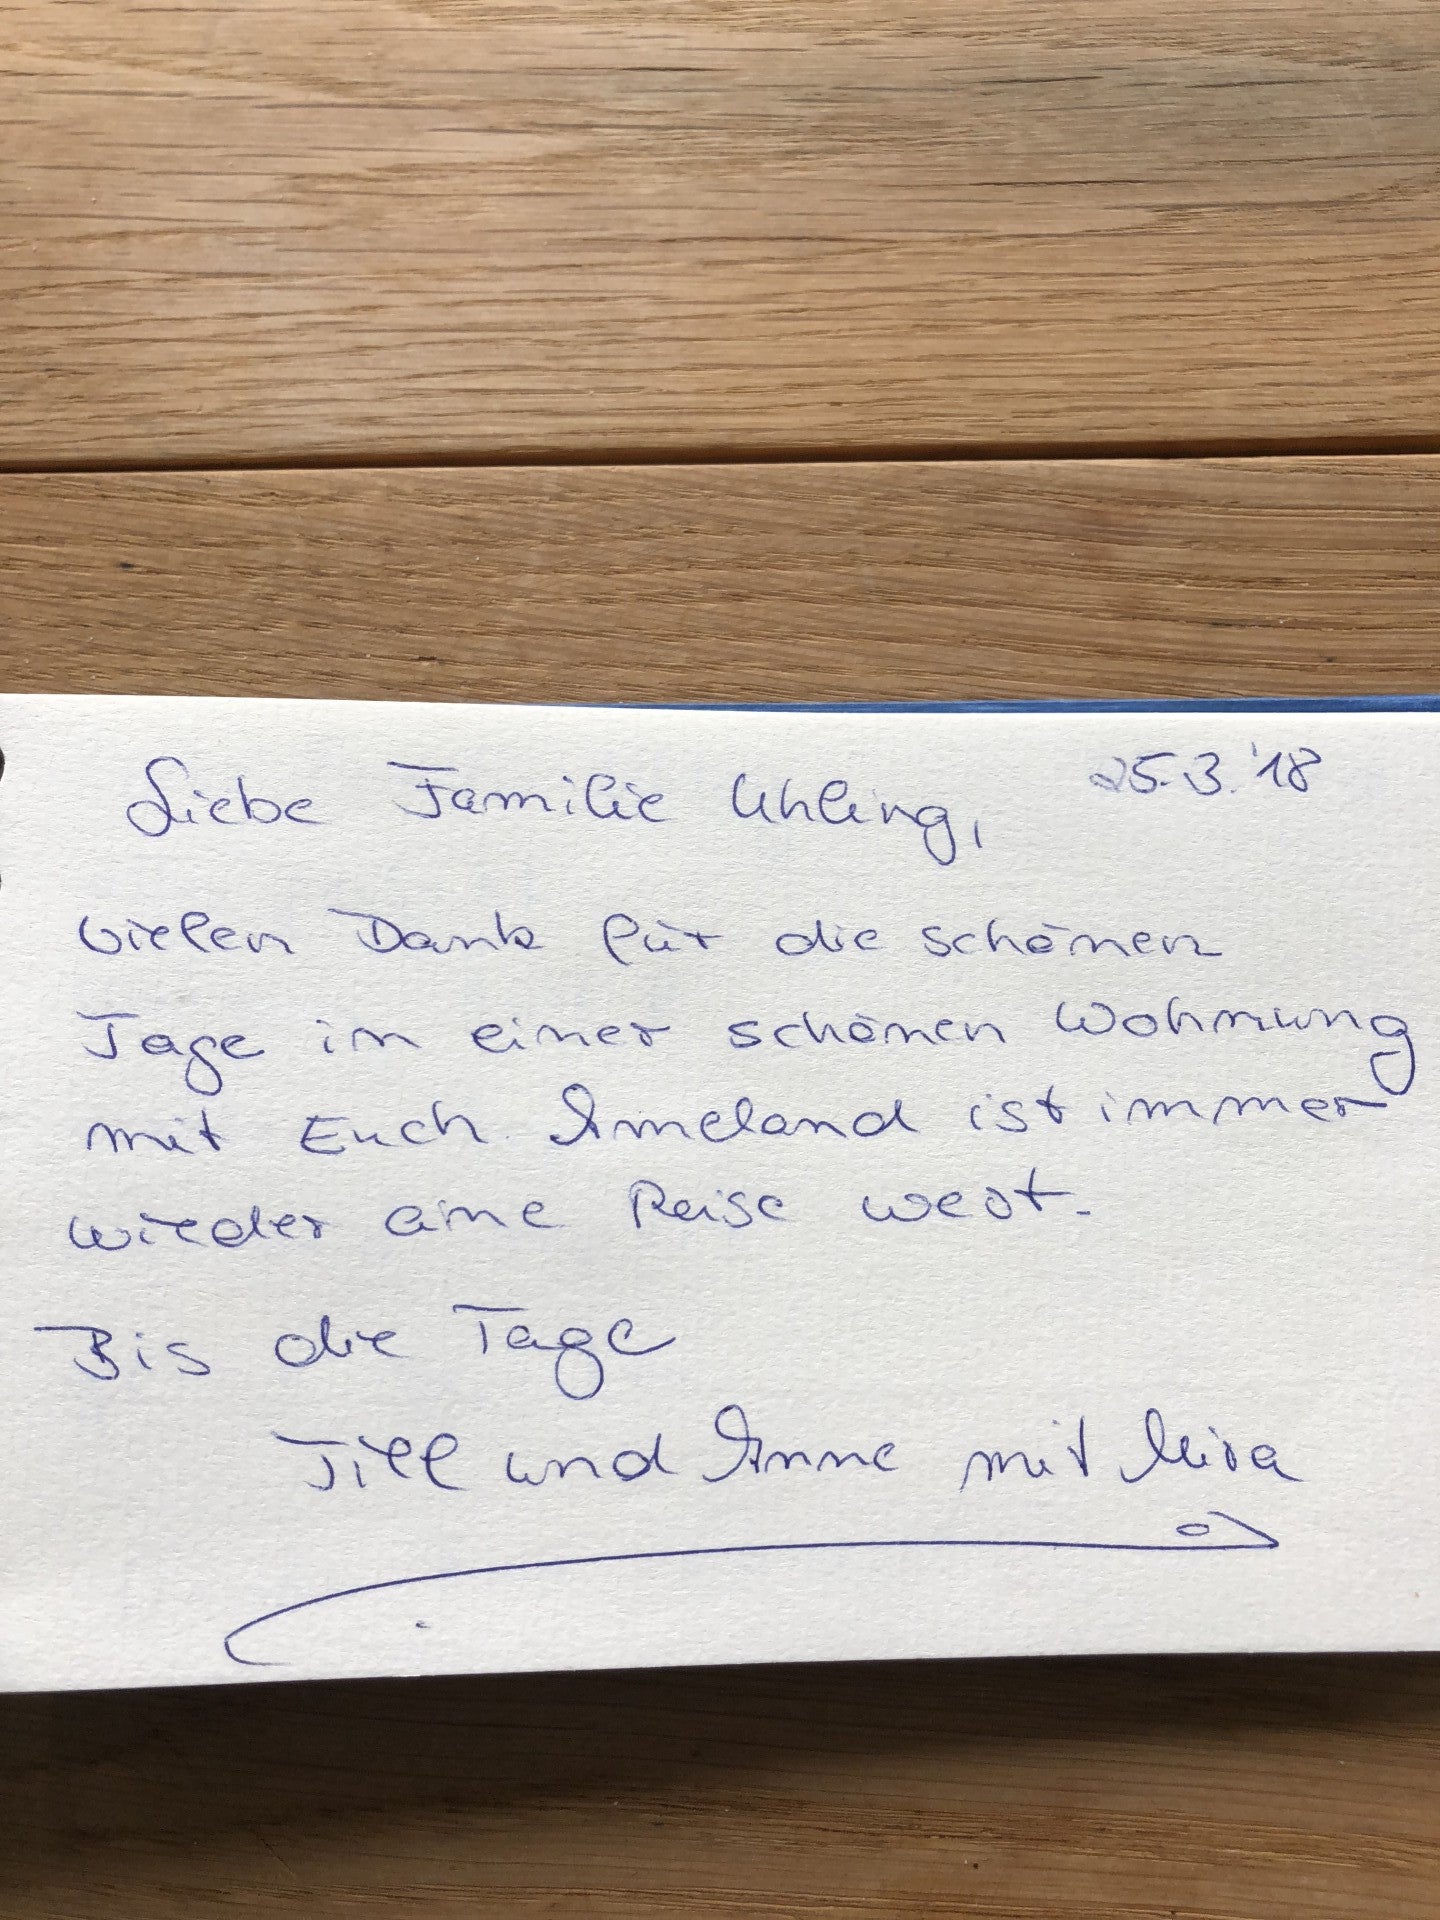 Liebe Familie Uhling, 25.3.'18
vielen Dank für die schönen
Tage in einer schönen Wohnung
mit Euch. Ameland ist immer
wieder eine Reise wert.
Bis die Tage
Till und Anne mit Mira